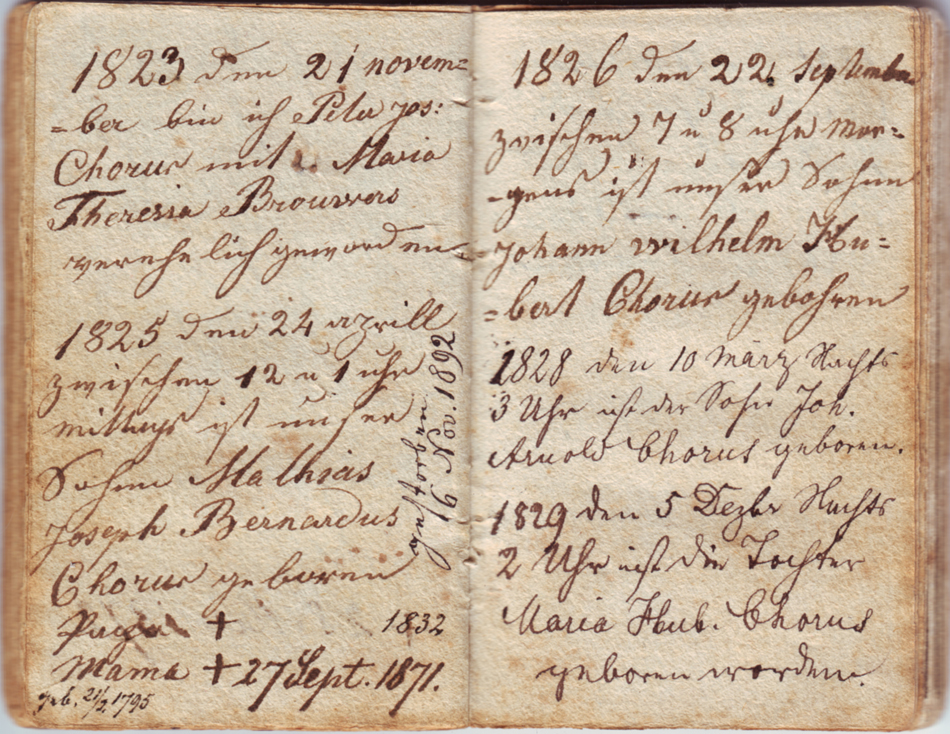 1823 den 21 novem=
=ber bin ich Peter Jos:
Chorus mit Maria
Theresia Brouwers
verehelich geworden
1825 den 24 aprill
zwischen 12 u 1 uhr
mittags ist unser
Sohnn Mathias
Joseph Bernardus
Chorus geboren
gestorben
16 Nov. 1892
Papa + 1832
Mama + 27 Sept. 1871.
geb. 21/2 1795
1826 den 22. September
zwischen 7 u 8 uhr Mor=
=gens ist unser Sohnn
Johann wilhelm Hu=
=bert Chorus gebohren
1828 den 10 März Nachts
3 Uhr ist der Sohn Joh.
Arnold Chorus geboren.
1829 den 5 Dezbr Nachts
2 Uhr ist die Tochter
Maria Hub. Chorus
geboren worden.